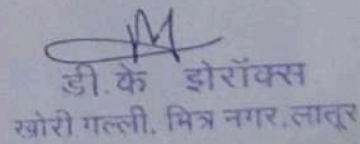 डी.के झेरॉक्स
खोरी गल्ली. मित्र नगर.लातूर